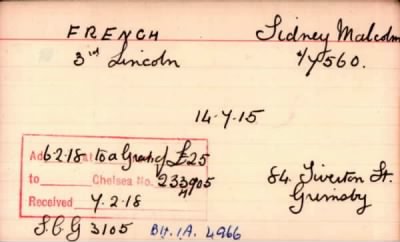 FRENCH Sidney Malcolm
3rd Lincoln 4/7560.
14-7-15
Ad 6-2-18 to a Grat. of £25
to Chelsea No. 233905
Received 7.2.18
84 Tiverton St.
Grimsby
S.C.G 3105 BH.1A. 4966